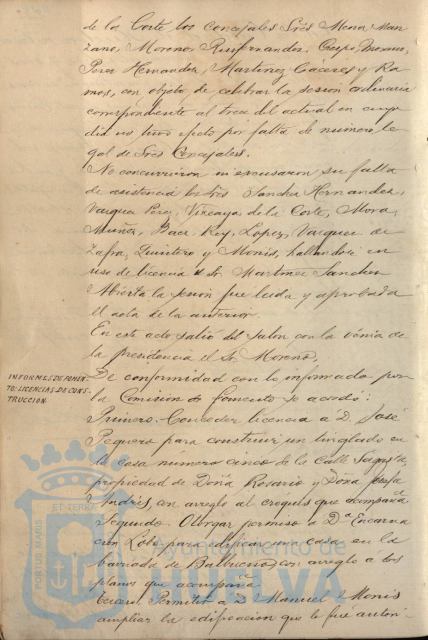 de la Corte, los concejales Srés Mora, Man-
zano, Moreno, Crespo,
Perez Hernandez, Martinez Cáceres y Ra-
mos, con objeto de celebrar la sesion ordinaria
correspondiente al trece del actual en cuyo
dia no tuvo efecto por falta de número le
gal de Srés Concejales.
No concurrieron ni escusaron su falta
de asistencia los Srés Sanchez Hernandez,
Vazquez Perez, Vizcaya, de la Corte, Mora,
Muñoz, Baez, Rey, Lopez, Vazquez de
Zafra, Quintero y Monis, hallandose en
uso de licencia el Sr Martinez Sanchez
Abierta la sesion fue leida y aprobada
el acta de la anterior.
En este acto salió del salon con la vénia de
la presidencia el Sr Moreno,
INFORMES DE FOMEN-
TO: LICENCIAS DE CONS-
TRUCCION
De conformidad con lo informado por
la Comision de fomento se acordó:
Primero. Conceder licencia a D. José
Peguero para construir un tinglado en
la casa número cinco de la Calle Sagasta
propiedad de Doña Rosario y Doña Josefa
Andrés, con arreglo al cróquis que acompaña
Segundo. Otorgar permiso a Dª Encarna
cion Lobo para edificar una casa en la
barriada de Balbueno, con arreglo a los
planos que acompaña
tercero. Permitir a D. Manuel Monis
ampliar la edificacion que le fué autori-
PORTUS MARIS ET TERRÆ
Ayuntamiento de
HUELVA